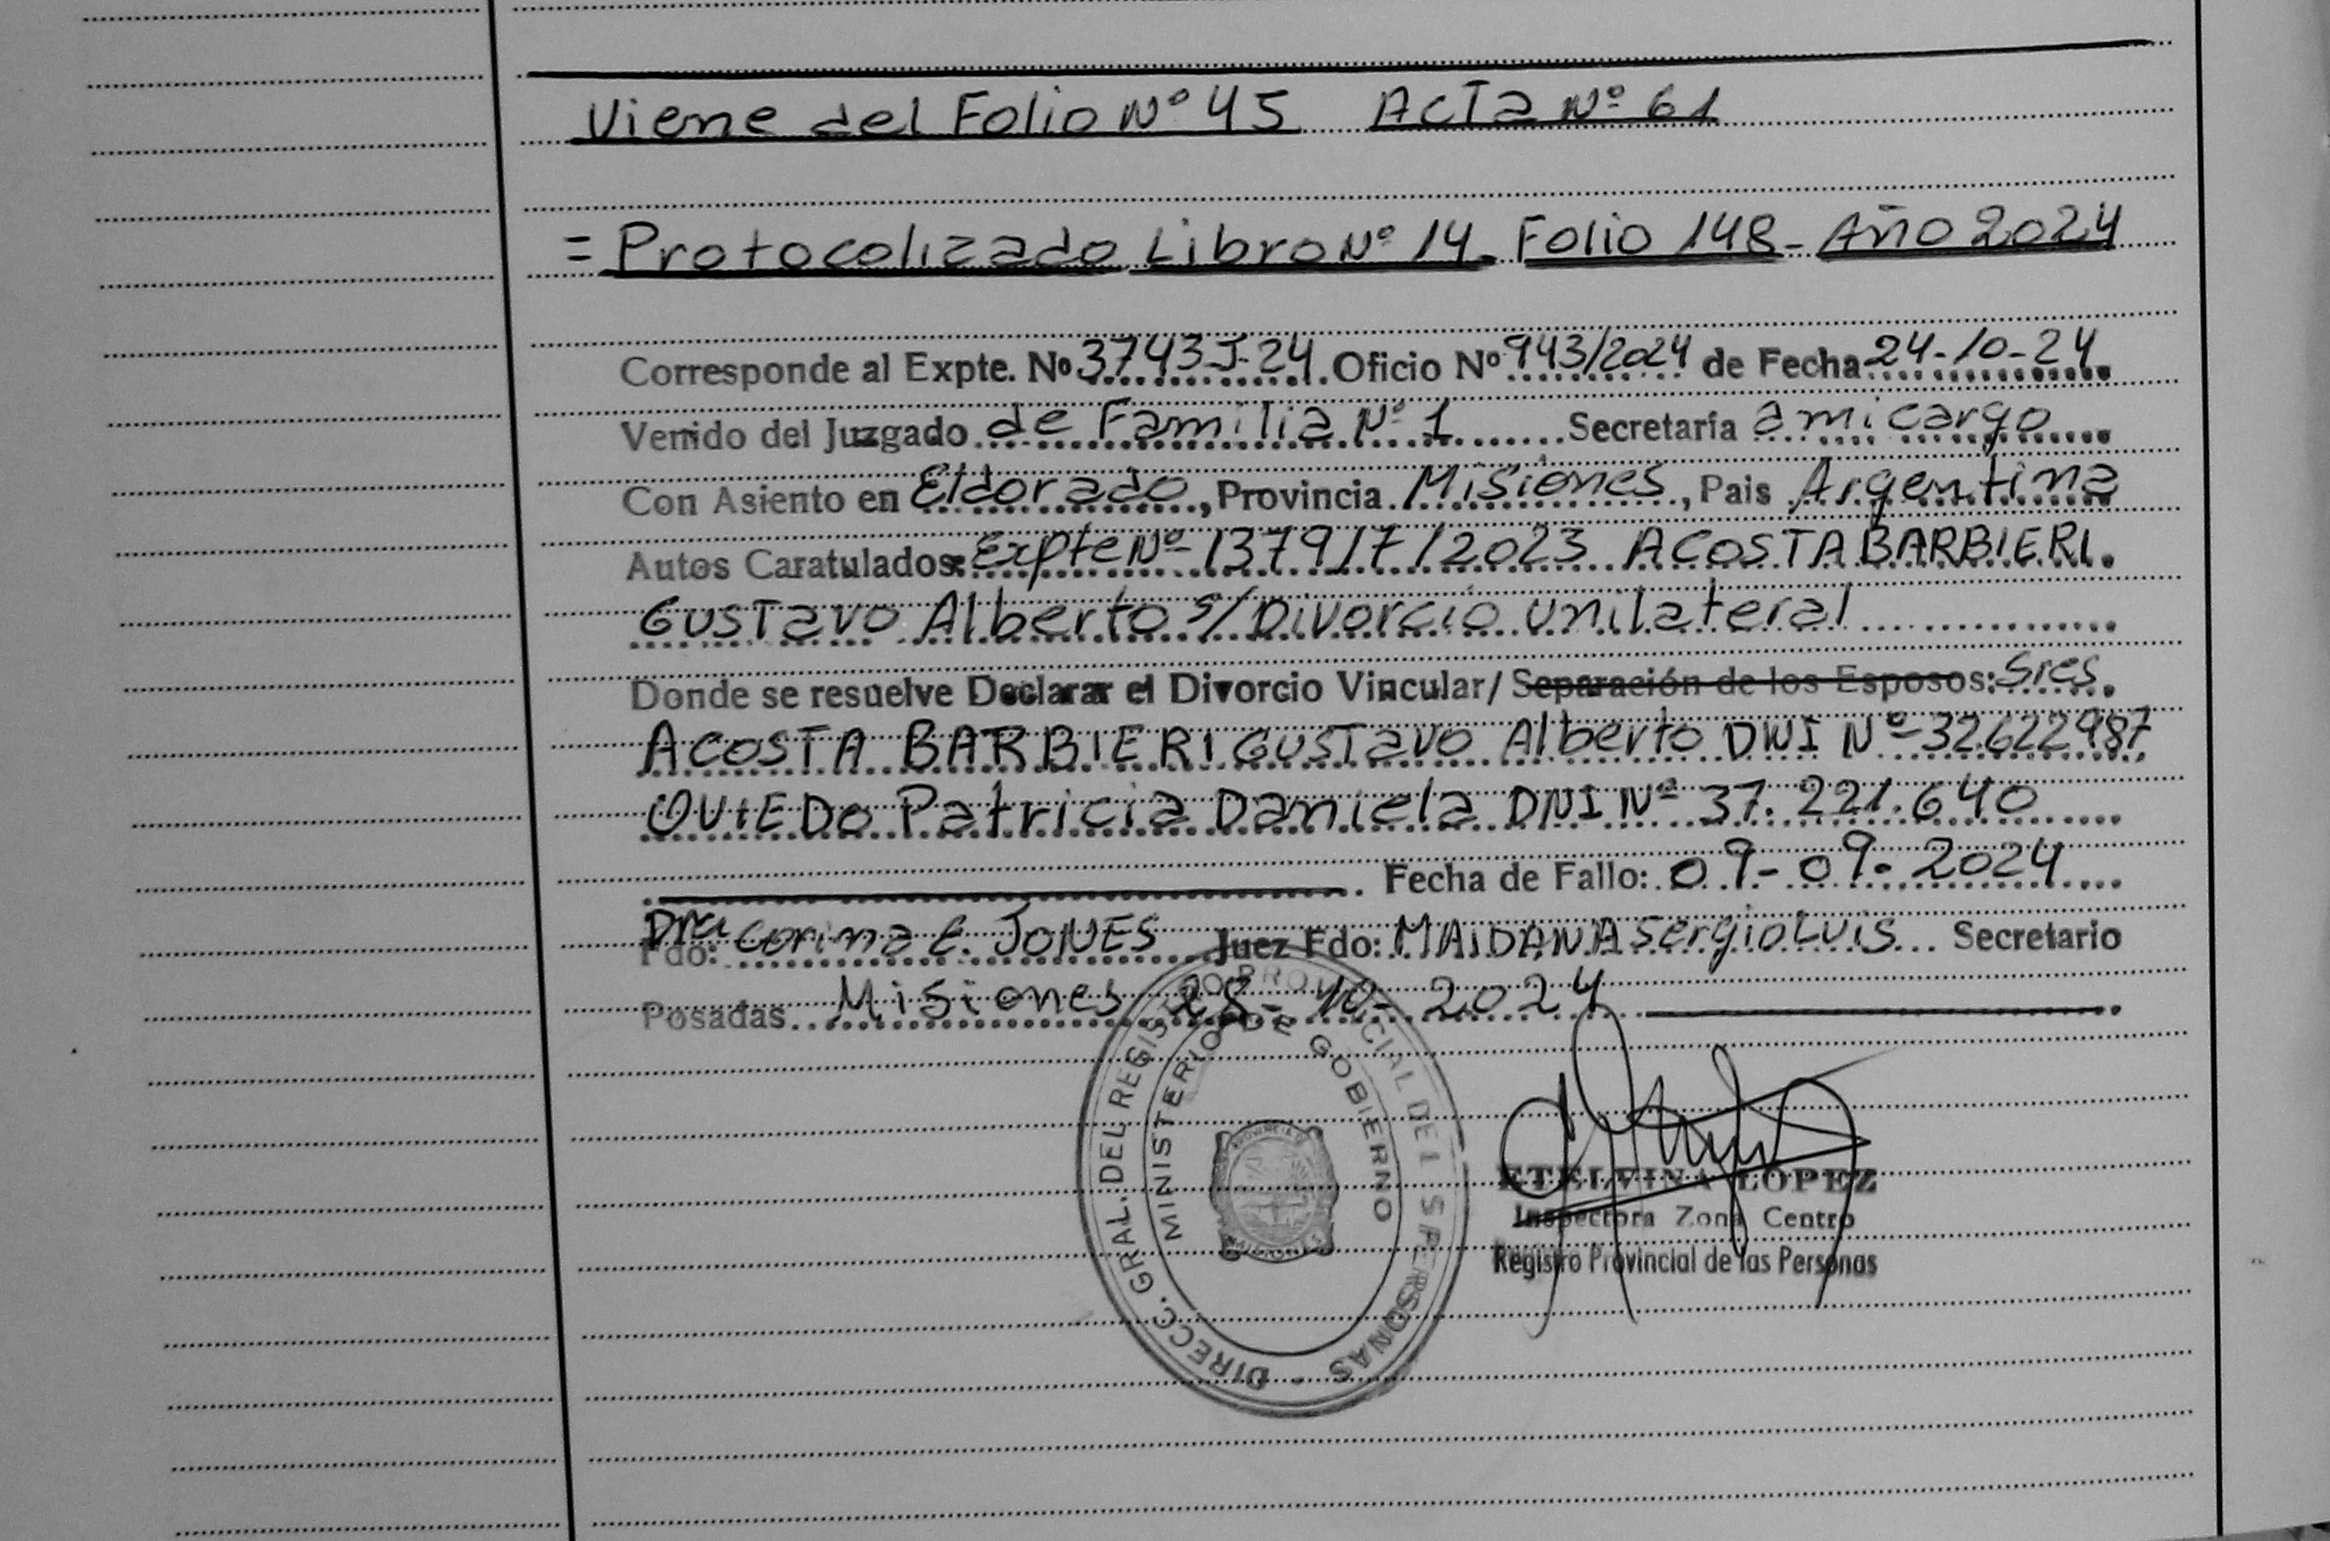 Viene del Folio Nº 45 Acta Nº 61
= Protocolizado Libro Nº 14. Folio 148 - Año 2024
Corresponde al Expte. Nº 3743 J-24 Oficio Nº 943/2024 de Fecha 24-10-24
Venido del Juzgado de Familia Nº 1 Secretaría a mi cargo
Con Asiento en Eldorado, Provincia Misiones, Pais Argentina
Autos Caratulados: Expte Nº 1379/7/2023 ACOSTA BARBIERI
Gustavo Alberto s/Divorcio Unilateral
Donde se resuelve Declarar el Divorcio Vincular/ Separación de los Esposos: Sres.
ACOSTA BARBIERI Gustavo Alberto DNI Nº 32622987
OVIEDO Patricia Daniela DNI Nº 37.221.640
Fecha de Fallo: 09-09-2024
Fdo: Dra Corina E. JONES Juez Fdo: MAIDANA Sergio Luis Secretario
Posadas Misiones 28-10-2024
DIRECC. GRAL. DEL REGISTRO PROVINCIAL DE LAS PERSONAS
MINISTERIO DE GOBIERNO
ETELVINA LOPEZ
Inspectora Zona Centro
Registro Provincial de las Personas